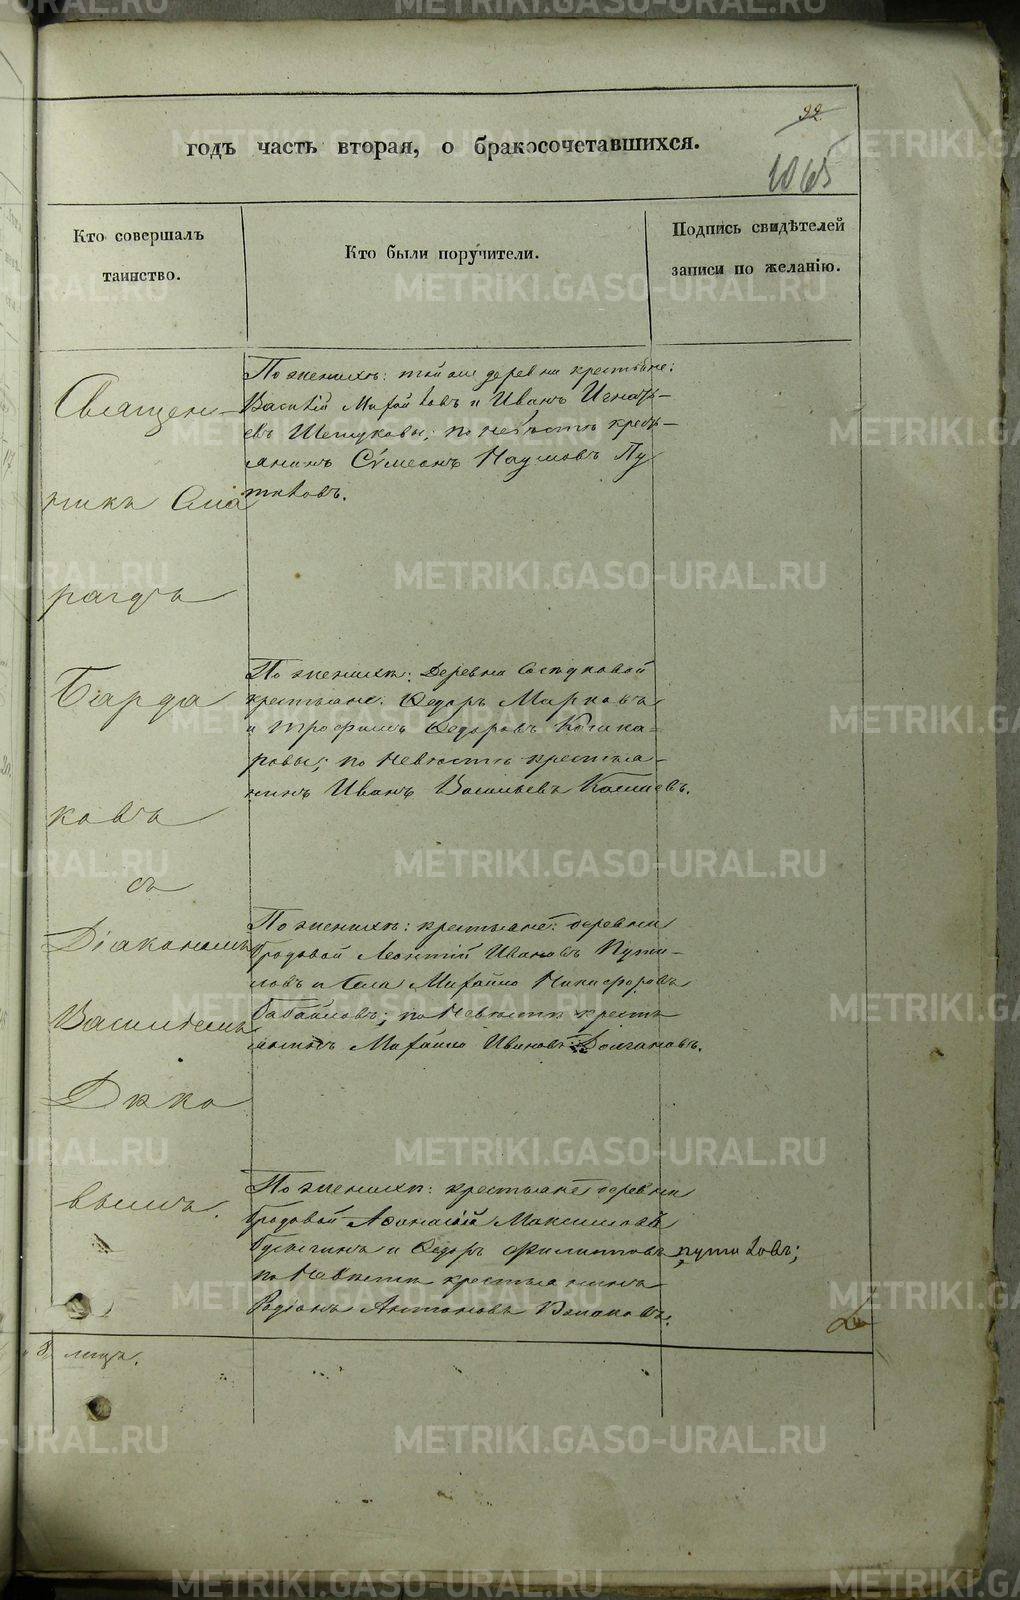 22
годъ часть вторая, о бракосочетавшихся.
1065
Кто совершалъ
таинство.
Кто были поручители.
Подпись свидѣтелей
записи по желанію.
Священ-
никъ Сма
рагдъ
Бирда
ковъ
съ
Діакономъ
Василіемъ
Дяко
вымъ.
По женихѣ: той же деревни крестьяне:
Василій и Иванъ Игнать-
евъ по невѣстѣ кресть-
янинъ Сѵмеонъ Наумовъ Пу
тиловъ.
По женихѣ: Деревни
крестьяне: Ѳедоръ Марковъ
и Трофимъ Ѳедоровъ
ровы; по невѣстѣ крестья-
нинъ Иванъ Васильевъ
По женихѣ: крестьяне: деревни
Бродовой Леонтій Ивановъ Пути-
ловъ и села Михайло Никифоровъ
Бабайловъ; по невѣстѣ кресть
янинъ Михайло Ивановъ Долгановъ.
По женихѣ: крестьяне деревни
Бродовой Аѳанасій Максимовъ
и Ѳедоръ Филипповъ Путиловъ;
по невѣстѣ крестьянинъ
Родіонъ Антоновъ
8 лицъ.
METRIKI.GASO-URAL.RU